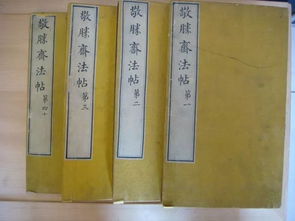 敬勝齋法帖 第一
敬勝齋法帖 第二
敬勝齋法帖 第三
敬勝齋法帖 第四十